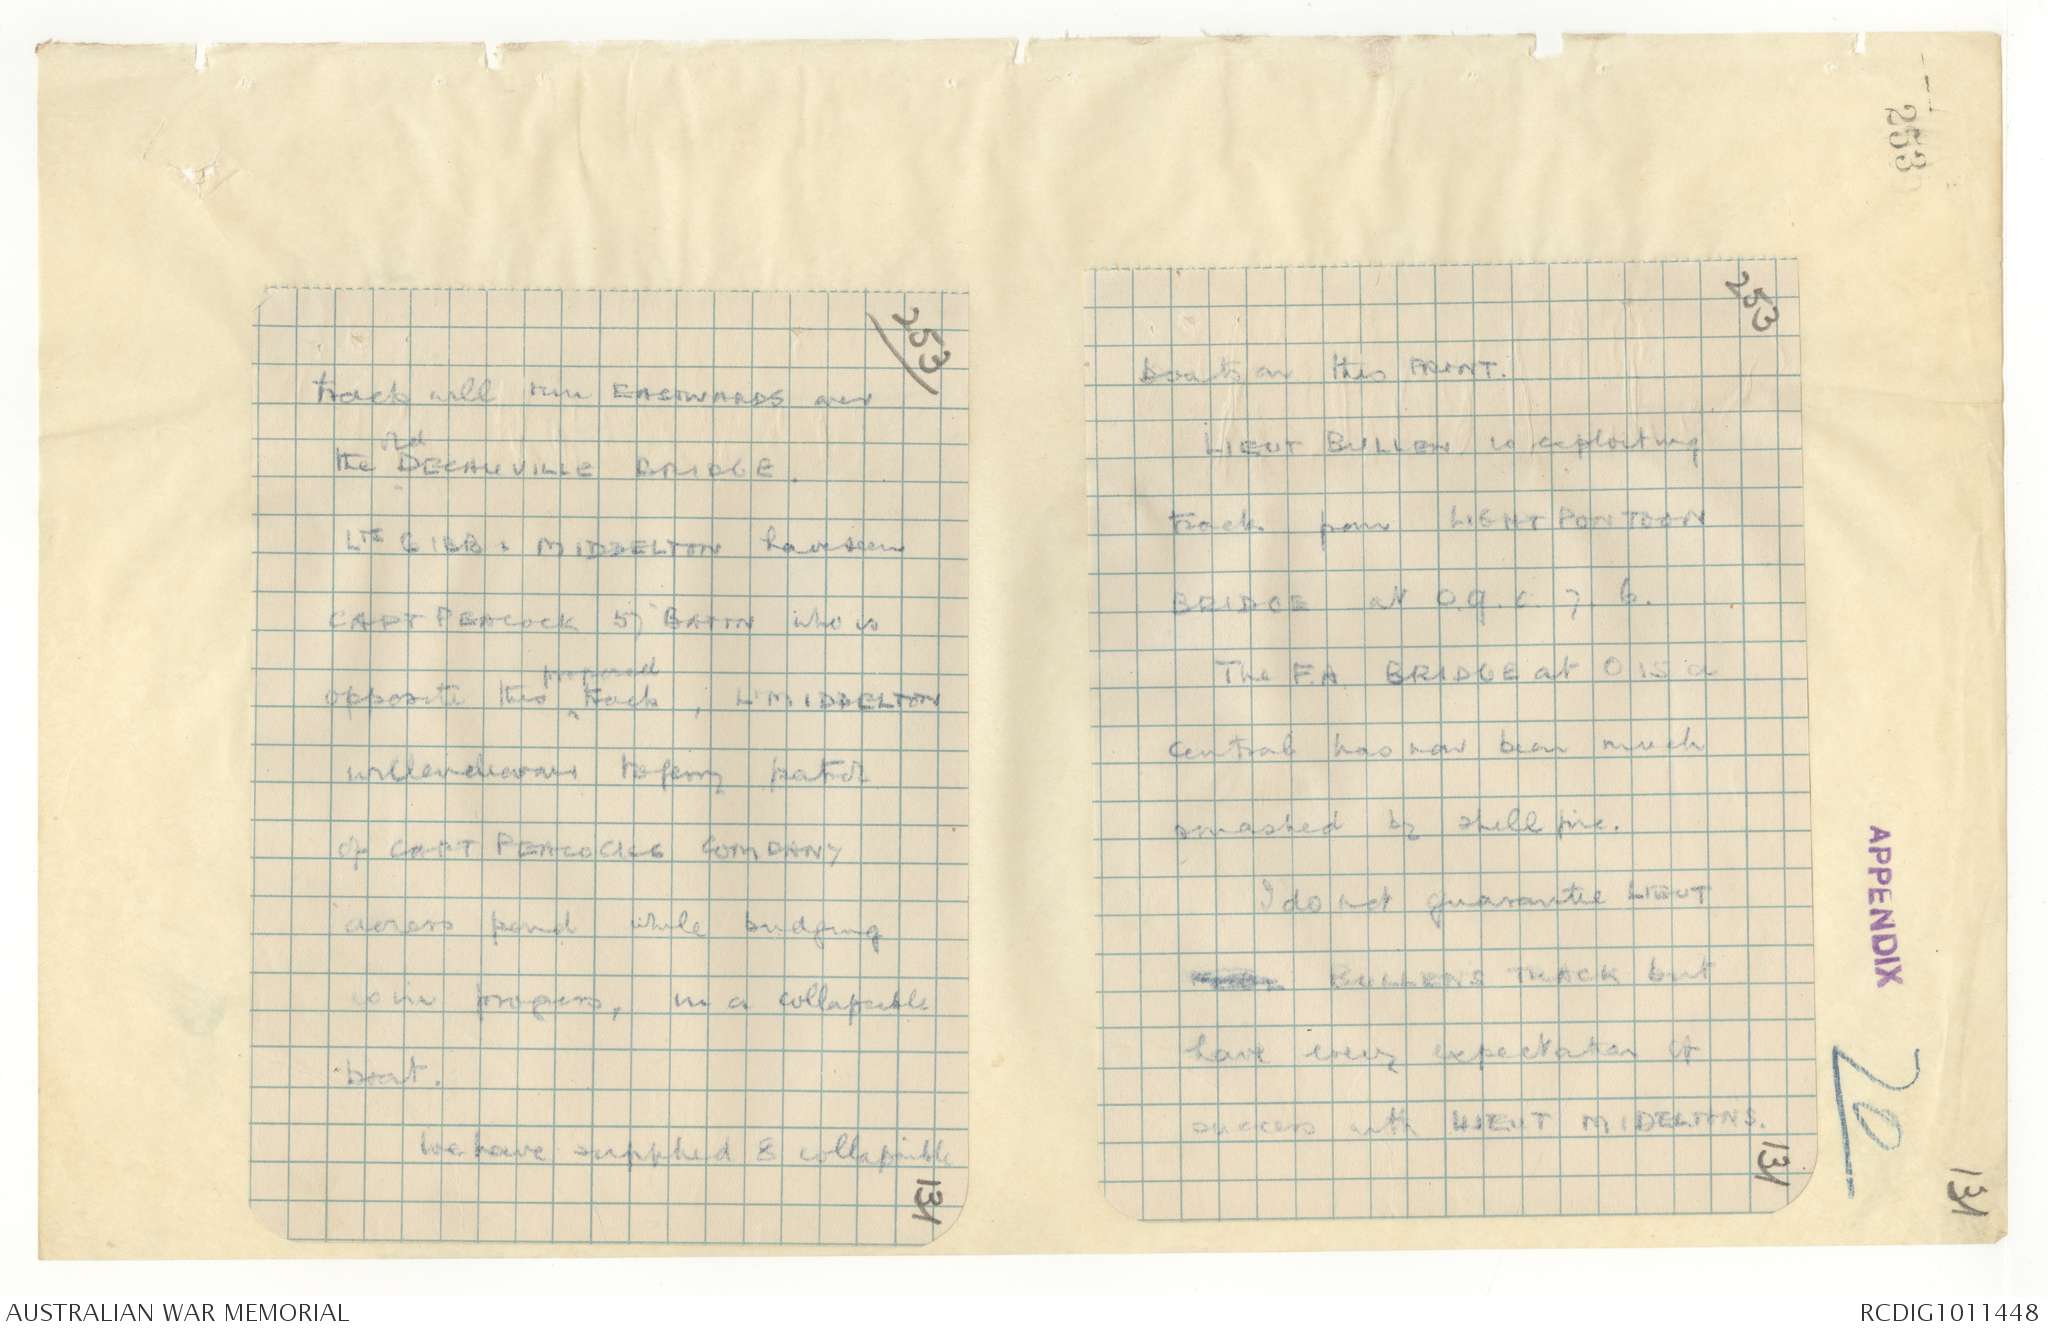 253
253
track will run EASTWARDS over
old
the DECAUVILLE BRIDGE.
Lts GIBB & MIDDELTON have seen
CAPT PEACOCK 57 BATTN who is
proposed
opposite this ^ track, Lt MIDDELTON
will endeavour to ferry patrol
of CAPT PEACOCKS COMPANY
across pond while bridging
is in progress, in a collapsible
boat.
We have supplied 8 collapsible
131
253
boats on this FRONT.
LIEUT BULLEN is exploiting
track from LIGHT PONTOON
BRIDGE at O.9.c.7.6.
The F.A. BRIDGE at O 15 a
central has now been much
smashed by shell fire.
I do not guarantee LIEUT
BULLENS TRACK but
have every expectation of
success with LIEUT MIDELTONS.
131
APPENDIX
20
131
AUSTRALIAN WAR MEMORIAL
RCDIG1011448